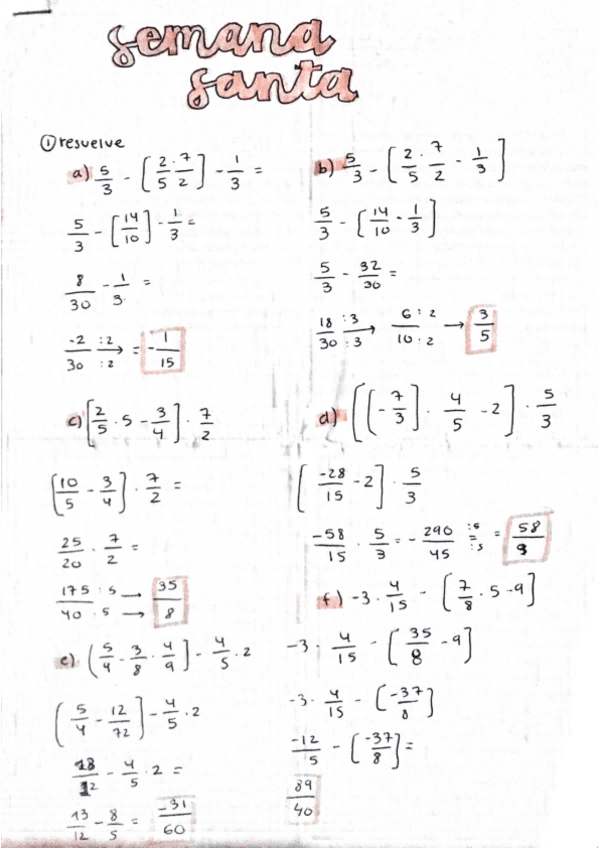 semana
santa
① resuelve
a) 5/3 - [2/5 · 7/2] - 1/3 =
5/3 - [14/10] - 1/3 =
8/30 - 1/3 =
-2/30 :2/:2 → = -1/15
b) 5/3 - [2/5 · 7/2 - 1/3]
5/3 - [14/10 - 1/3]
5/3 - 32/30 =
18/30 :3/:3 → 6/10 :2/:2 → 3/5
c) [2/5 · 5 - 3/4] · 7/2
[10/5 - 3/4] · 7/2 =
25/20 · 7/2 =
175/40 :5/·5 → 35/8
d) [(-7/3) · 4/5 - 2] · 5/3
[-28/15 - 2] · 5/3
-58/15 · 5/3 = -290/45 :5/:5 = 58/9
e) (5/4 - 3/8 · 4/9] - 4/5 · 2
(5/4 - 12/72] - 4/5 · 2
13/12 - 4/5 · 2 =
13/12 - 8/5 = -31/60
f) -3 · 4/15 - [7/8 · 5 - 9]
-3 · 4/15 - [35/8 - 9]
-3 · 4/15 - [-37/8]
-12/5 - [-37/8] =
89/40